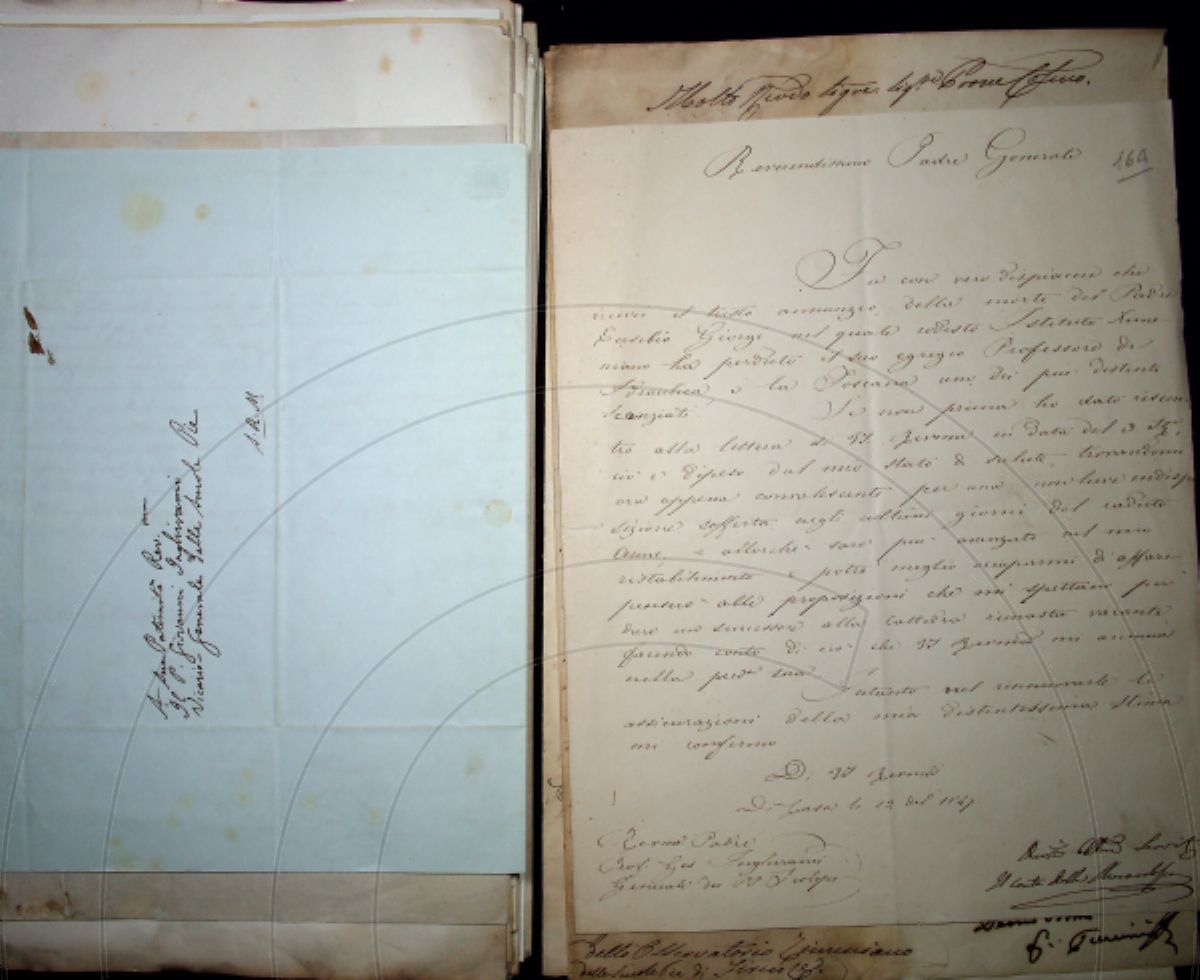 A Sua Paternità Rev.ma
Il P. Giovanni Inghirami
Vicario Generale delle Scuole Pie
S. R. M.
Molto
Reverendissimo Padre Generale
164
Fu con vero dispiacere che
ricevei il tristo annunzio della morte del Padre
Eusebio Giorgi nel quale codesto Istituto Xime-
niano ha perduto il suo egregio Professore di
Idraulica e la Toscana uno dei più distinti
Scenziati. Se non prima ho dato riscon-
tro alla lettera di V. Rev.ma in data del 3 St.e,
ciò è dipeso dal mio stato di salute, trovandomi
ora appena convalescente per una non lieve indispo-
sizione sofferta negli ultimi giorni del caduto
Anno, e allorchè sarò più avanzato nel mio
ristabilimento e potrò meglio occuparmi di affari
penserò alle proposizioni che mi spettano per
dare un successore alla cattedra rimasta vacante
facendo conto di ciò che V. Rev.ma mi annunzia
nella pred.a sua. Intanto nel rinnuovarle le
assicurazioni della mia distintissima stima
mi confermo
Di V. Rev.ma
Di Casa li 12 del
Rev.mo Padre
Prof. Inghirami
Generale dei PP. Scolopi
Il Conte della
Dello Osservatorio Ximeniano
delle Scuole Pie di